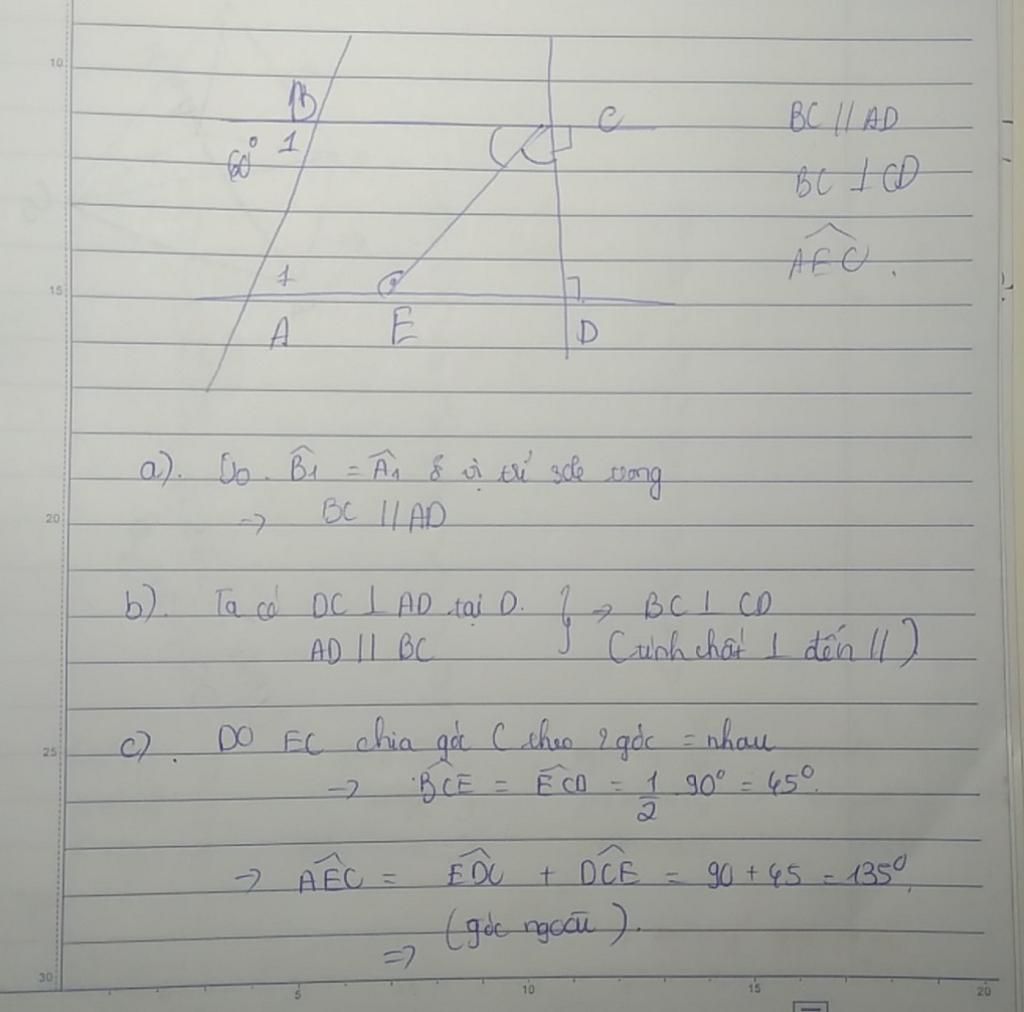 10
B
C
BC // AD
60° 1
BC ⊥ CD
AEC.
1
15
A E D
a). Do B̂1 = Â1 ở vị trí sole trong
20
→ BC // AD
b). Ta có DC ⊥ AD tại D. } → BC ⊥ CD
AD // BC (tính chất ⊥ đến //)
25
c). DO EC chia góc C theo 2 góc = nhau
→ BCE = ECD = 1/2 90° = 45°.
→ AEC = EDC + DCE = 90 + 45 = 135°.
(góc ngoài).
⇒
30
5 10 15 20